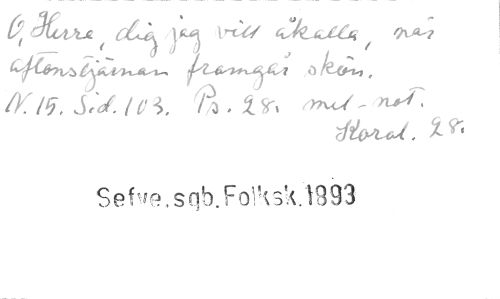 O, Herre, dig jag vill åkalla, när
aftonstjärnan framgår skön.
N. 15. Sid. 103. Ps. 28. mel-not.
Koral. 28.
Sefve.sgb.Folksk.1893